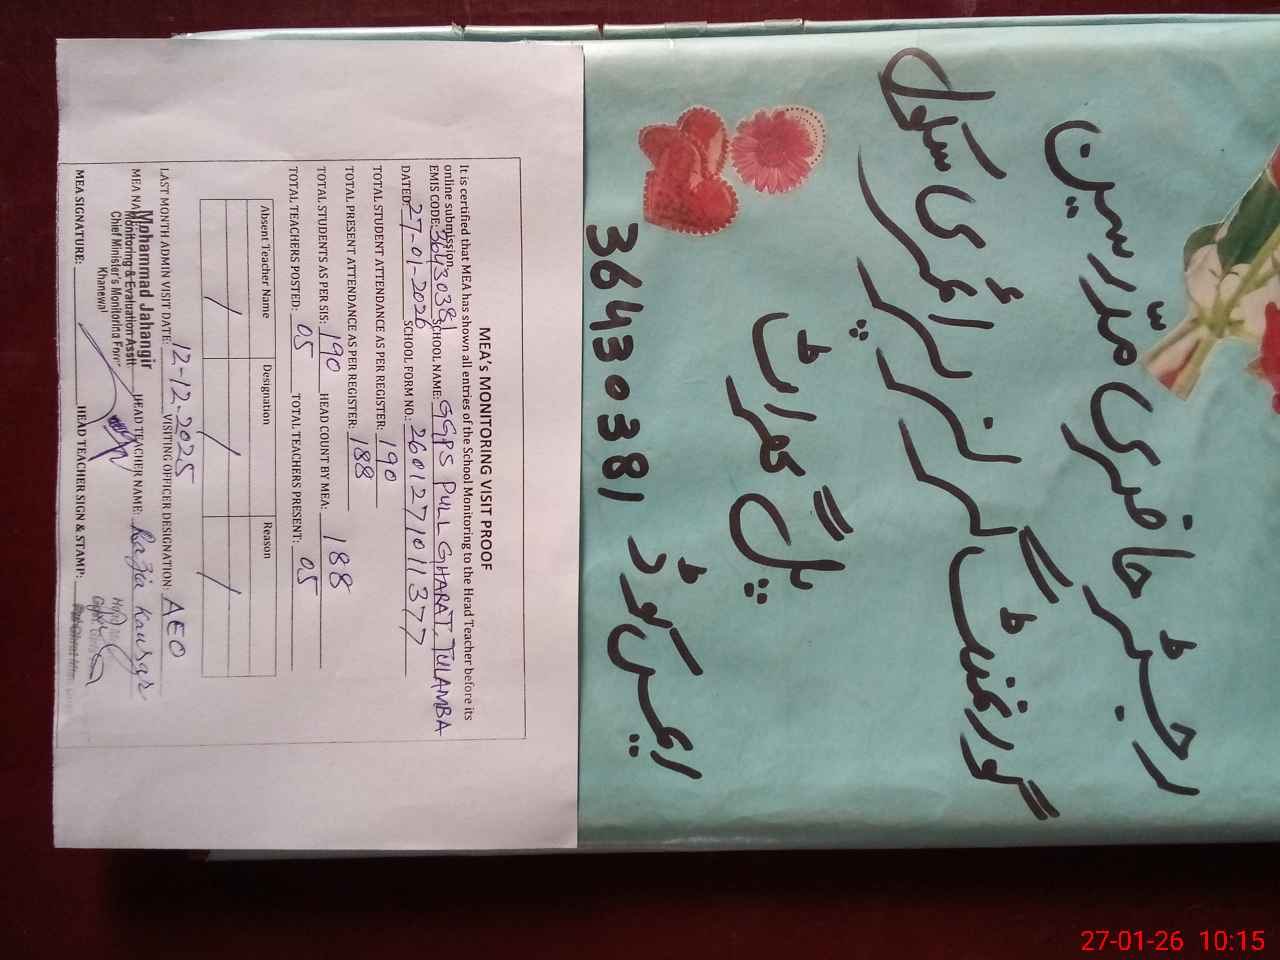 رجسٹر حاضری مدرسین
گورنمنٹ گرلز پرائمری سکول
پل گھراٹ
ایمس کوڈ 36430381
MEA's MONITORING VISIT PROOF
It is certified that MEA has shown all entries of the School Monitoring to the Head Teacher before its
online submission.
EMIS CODE: 36430381 SCHOOL NAME: GGPS PULL GHARAT, TULAMBA
DATED: 27-01-2026 SCHOOL FORM NO.: 2601271011377
TOTAL STUDENT ATTENDANCE AS PER REGISTER: 190
TOTAL PRESENT ATTENDANCE AS PER REGISTER: 188
TOTAL STUDENTS AS PER SIS: 190 HEAD COUNT BY MEA: 188
TOTAL TEACHERS POSTED: 05 TOTAL TEACHERS PRESENT: 05
Absent Teacher Name Designation Reason
/ / /
LAST MONTH ADMIN VISIT DATE: 12-12-2025 VISITING OFFICER DESIGNATION: AEO
MEA NAME: Mohammad Jahangir HEAD TEACHER NAME: Razia Kausar
Monitoring & Evaluation Asstt
Chief Minister's Monitoring Force
Khanewal
MEA SIGNATURE: HEAD TEACHER SIGN & STAMP:
27-01-26 10:15